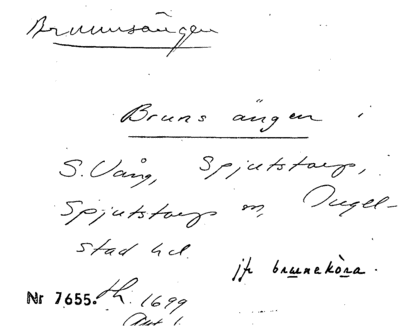 Brunnsängen
Bruns ängen i
S. Vång, Spjutstorp,
Spjutstorp sn, Ingel-
stad hd.
jfr brunekòra.
Nr 7655. 1699
Akt 1.